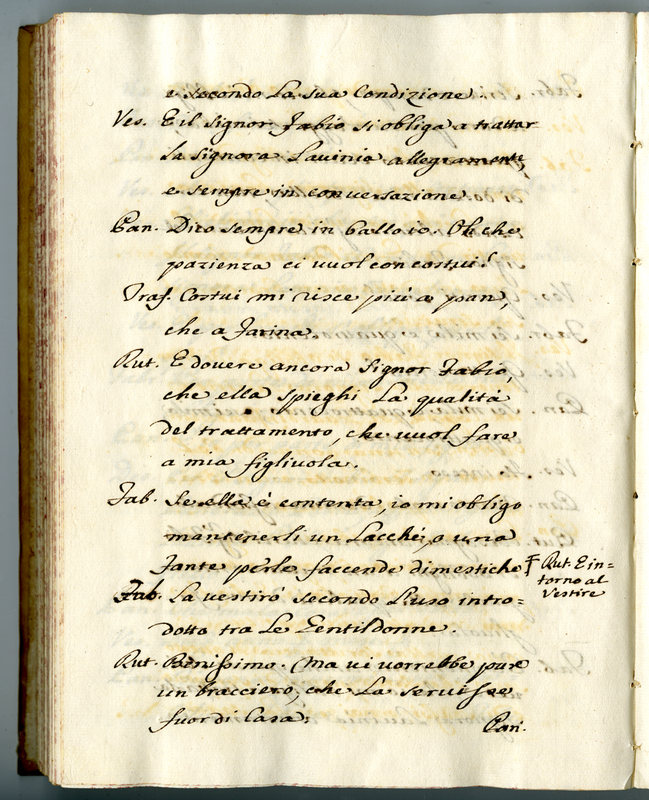 e secondo La sua Condizione.
Ves. E il Signor Fabio si obliga a trattar
la Signora Lavinia allegramente,
e sempre in conversazione.
Pan. Dico sempre in ballo io. Oh che
pazienza ci vuol con costui!
Traf. Costui mi riesce più a pan,
che a Farina.
Rut. E dovere ancora Signor Fabio,
che ella spieghi La qualità
del trattamento, che vuol fare
a mia figlivola.
Fab. Se ella è contenta, io mi obligo
mantenerli un Lacchè, o una
Fante per le faccende dimestiche
Rut. E in=
torno al
Vestire
Fab. La vestirò secondo L'uso intro=
dotto tra Le Gentildonne.
Rut. Benissimo. Ma vi vorrebbe pure
un bracciero, che La servisse
fuor di Casa.
Pan.